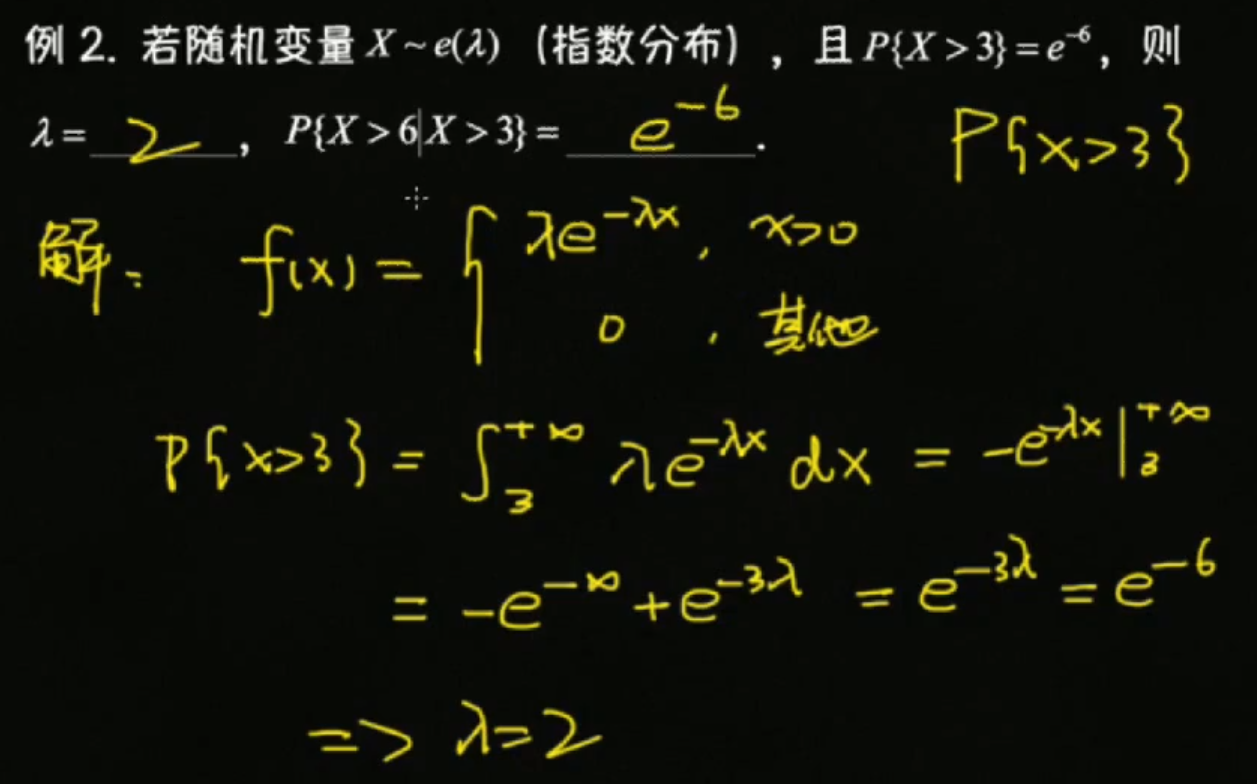 例 2. 若随机变量 X ~ e(λ) (指数分布), 且 P{X > 3} = e⁻⁶, 则
λ = 2, P{X > 6|X > 3} = e⁻⁶. P{x>3}
解: f(x) = { λe^{-λx}, x>0
0, 其他
P{x>3} = ∫₃^{+∞} λe^{-λx} dx = -e^{-λx}|₃^{+∞}
= -e^{-∞} + e^{-3λ} = e^{-3λ} = e^{-6}
=> λ=2